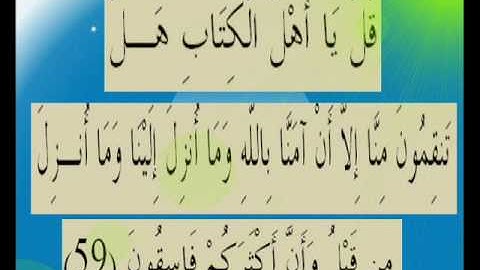 قُلْ يَا أَهْلَ الكِتَابِ هَــلْ
تَنقِمُونَ مِنَّا إِلاَّ أَنْ آمَنَّا بِاللَّهِ وَمَا أُنزِلَ إِلَيْنَا وَمَا أُنــزِلَ
مِن قَبْلُ وَأَنَّ أَكْثَرَكُمْ فَاسِقُونَ (59)